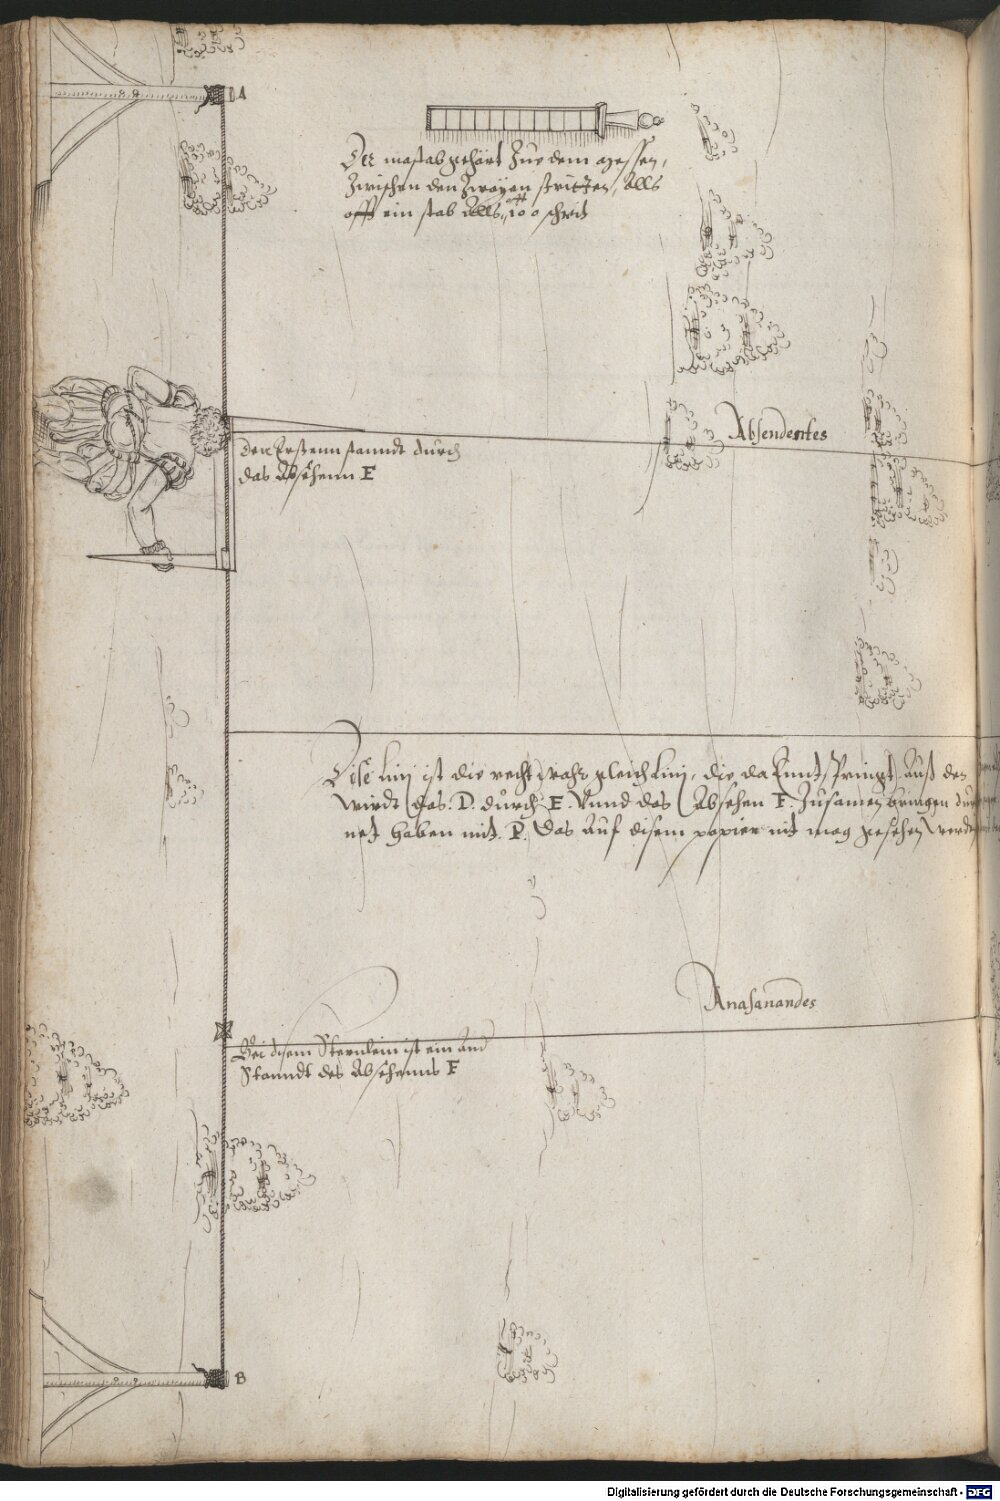 A
Der maßstab gehört Zue dem
Zwischen den Zwayen stricken, Alls
offt ein stab Alls, 100 schrit
Absendentes
den Ersten stanndt durch
das Absehenn F
Dise Lini ist die recht wahr gleich Lini, die da Auß der
wirdt das D. durch E. Vnnd das Absehen F. Zusamen bringen
net haben mit P. Das Auf disem papier nit mag gesehen werden
Anasanandes
Bei disem Sternlein ist ein And
Stanndt des Absehenns F
B
Digitalisierung gefördert durch die Deutsche Forschungsgemeinschaft - DFG